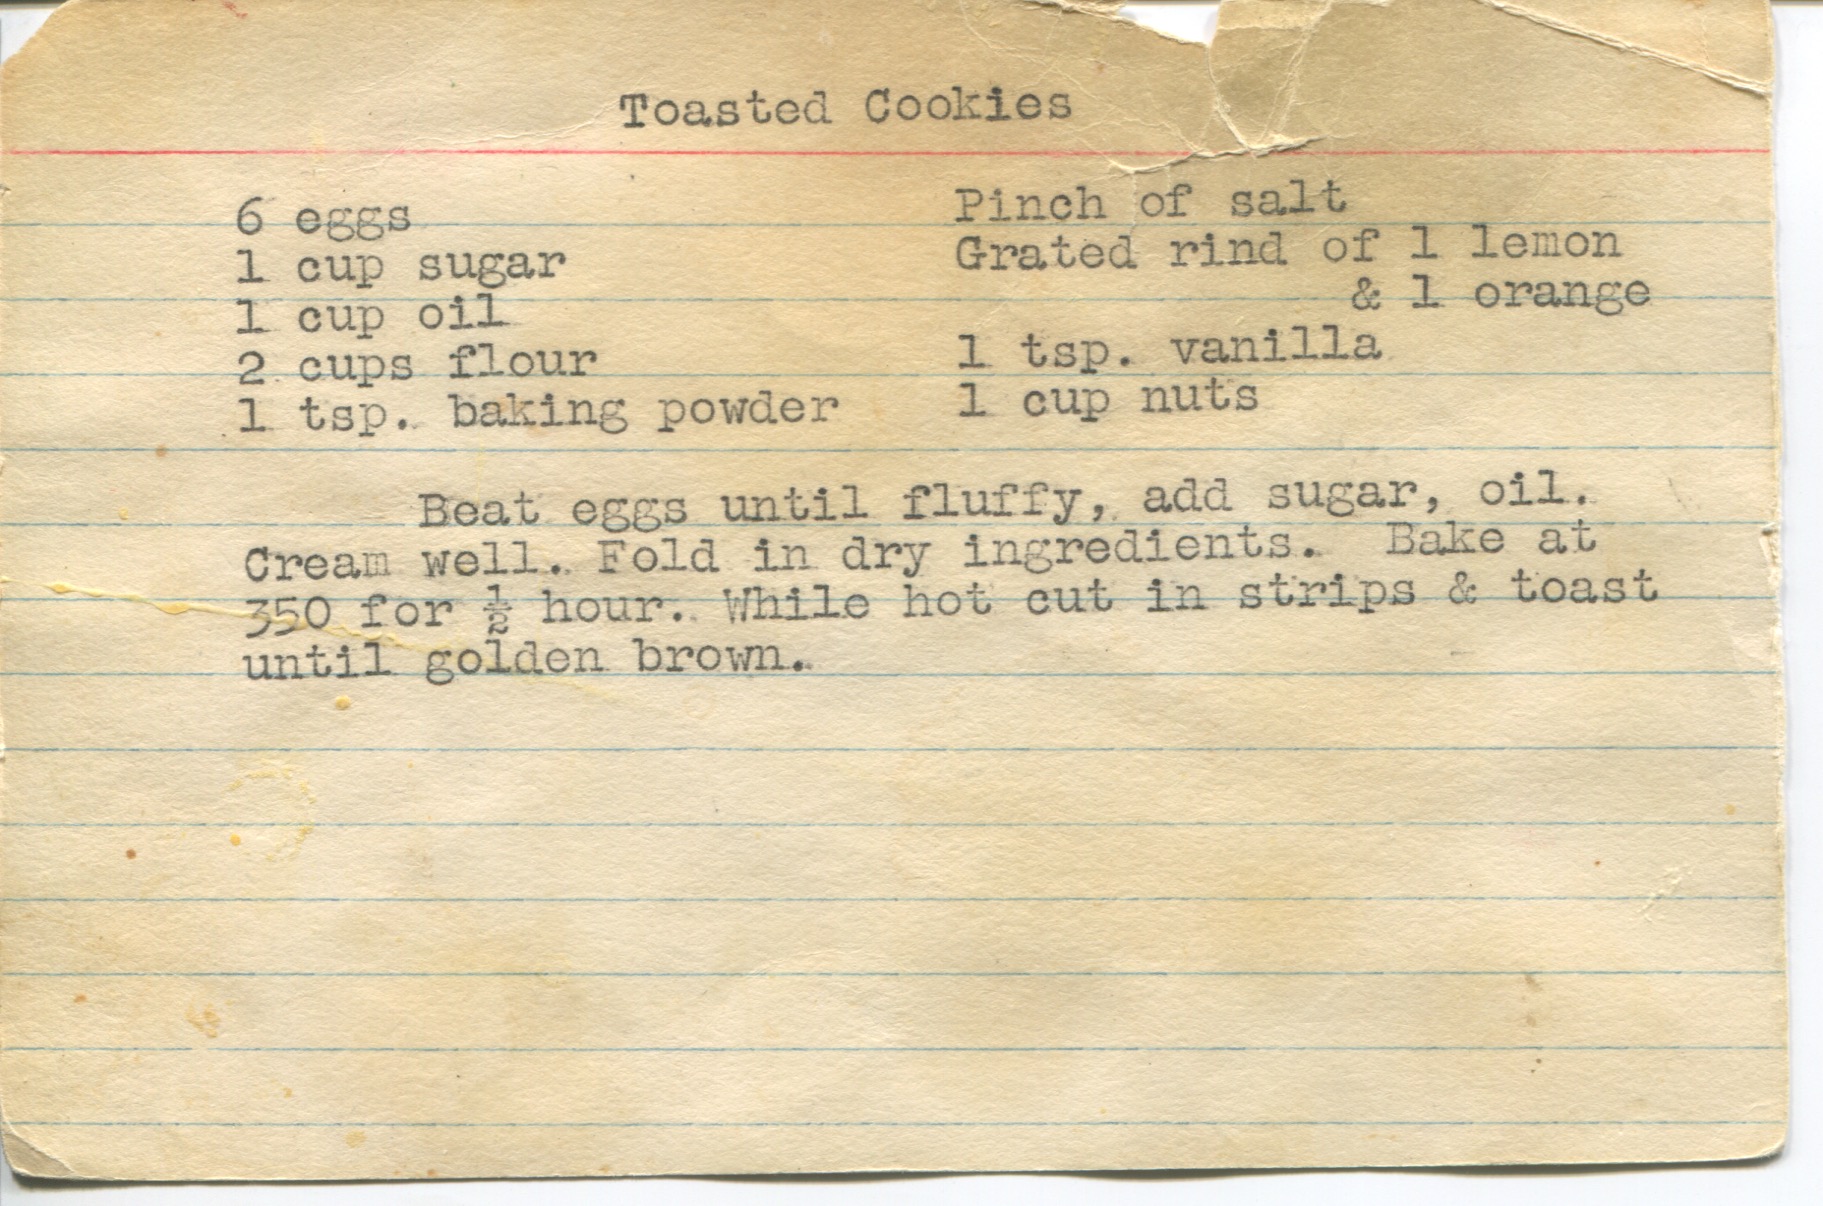 Toasted Cookies
6 eggs
1 cup sugar
1 cup oil
2 cups flour
1 tsp. baking powder
Pinch of salt
Grated rind of 1 lemon
& 1 orange
1 tsp. vanilla
1 cup nuts
Beat eggs until fluffy, add sugar, oil.
Cream well. Fold in dry ingredients. Bake at
350 for ½ hour. While hot cut in strips & toast
until golden brown.